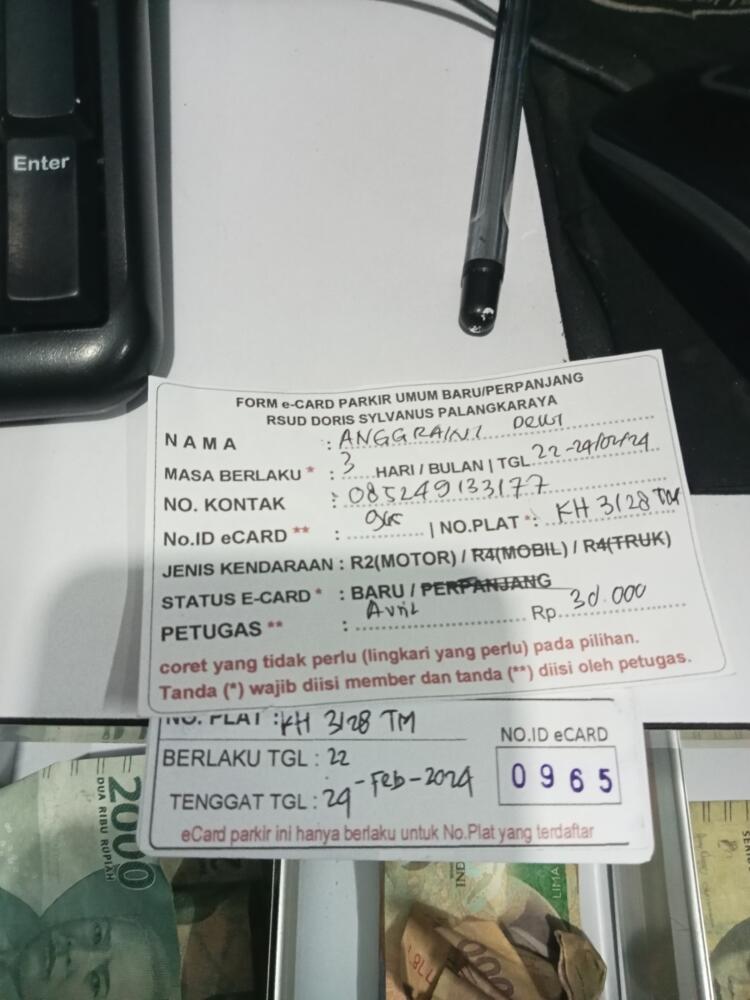 Enter
FORM e-CARD PARKIR UMUM BARU/PERPANJANG
RSUD DORIS SYLVANUS PALANGKARAYA
NAMA : ANGGRAINI DEWI
MASA BERLAKU * : 3 HARI / BULAN | TGL 22-24/02/24
NO. KONTAK : 085249133177
No.ID eCARD ** : 965 | NO.PLAT *: KH 3128 TM
JENIS KENDARAAN : R2(MOTOR) / R4(MOBIL) / R4(TRUK)
STATUS E-CARD * : BARU / PERPANJANG
PETUGAS ** : Avril Rp. 30.000
coret yang tidak perlu (lingkari yang perlu) pada pilihan.
Tanda (*) wajib diisi member dan tanda (**) diisi oleh petugas.
NO. PLAT : KH 3128 TM
NO.ID eCARD
BERLAKU TGL : 22
0965
TENGGAT TGL : 24 -Feb-2024
eCard parkir ini hanya berlaku untuk No.Plat yang terdaftar
2000
DUA RIBU RUPIAH
IND
LIMA